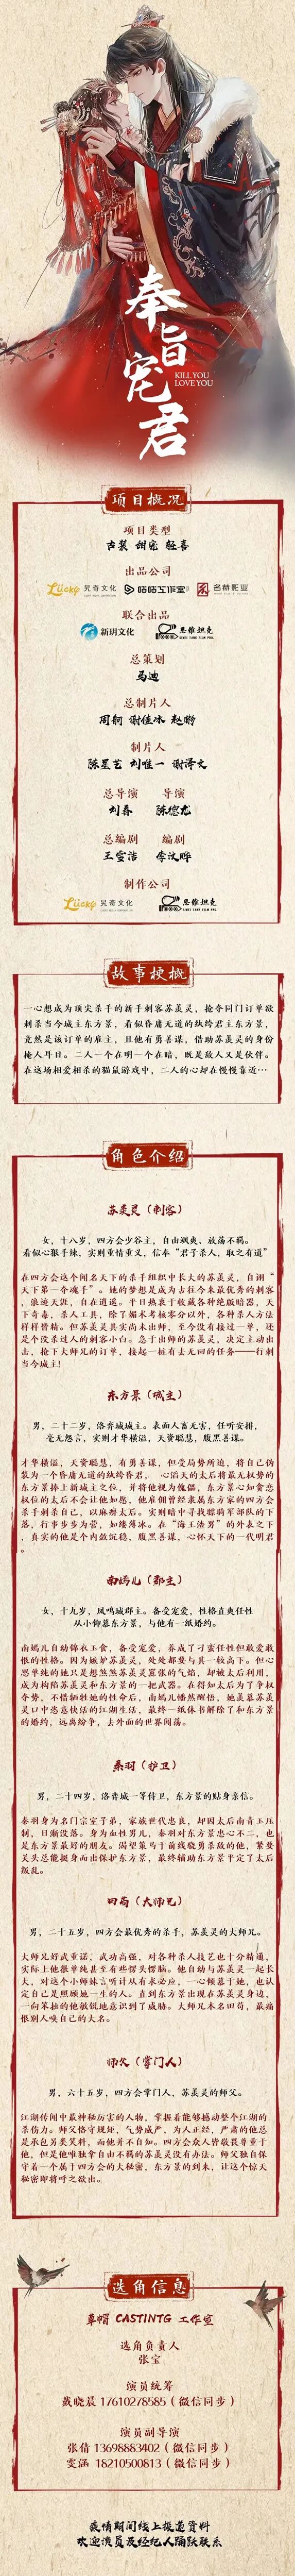 奉旨宠君
KILL YOU
LOVE YOU
项目概况
项目类型
古装 甜宠 轻喜
出品公司
Lucky 炅奇文化
咕咕工作室
名赫影业
联合出品
新玥文化
思维坦克
SIWEI TANK FILM PRO.
总策划
马迪
总制片人
制片人
总导演 导演
刘春 陈德龙
总编剧 编剧
王雪洁 李汶晔
制作公司
Lucky 炅奇文化
思维坦克
SIWEI TANK FILM PRO.
故事梗概
一心想成为顶尖杀手的新手刺客苏羡灵,抢夺同门订单欲
刺杀当今城主东方景,看似昏庸无道的纨绔君主东方景,
竟然是该订单的雇主,且他有勇善谋,借助苏羡灵的身份
掩人耳目。二人一个在明一个在暗,既是敌人又是伙伴。
在这场相爱相杀的猫鼠游戏中,二人的心却在慢慢靠近…
角色介绍
苏羡灵(刺客)
女,十八岁,四方会少谷主,自由飒爽、放荡不羁。
看似心狠手辣,实则重情重义,信奉“君子杀人,取之有道”
在四方会这个闻名天下的杀手组织中长大的苏羡灵,自诩“
天下第一夺魂手”。她的梦想是成为古往今来最优秀的刺客
,浪迹天涯,自在逍遥。平日热衷于收藏各种绝版暗器,天
下奇毒,杀人工具,除了媚术考核零分以外,各种杀人方法
样样皆精。但苏羡灵其实尚未出师,至今没有接过一单,还
是个没杀过人的刺客小白。急于出师的苏羡灵,决定主动出
击,抢下大师兄的订单,接起一桩有去无回的任务——行刺
当今城主!
东方景(城主)
男,二十二岁,洛弈城城主。表面人畜无害,任听安排,
毫无怨言,实则才华横溢,天资聪慧,腹黑善谋。
才华横溢,天资聪慧,有勇善谋,但受局势所迫,将自己伪
装为一个昏庸无道的纨绔昏君, 心滔天的太后将最无权势的
东方景捧上新城主之位,并将他视为傀儡,东方景心知贪恋
权位的太后不会让他如愿,他雇佣曾经隶属东方家的四方会
杀手刺杀自己,以麻痹太后。实则暗中寻找瞭骑军部队的下
落,行事步步为营,如履薄冰。在“海王渣男”的外表之下
,真实的他是个内敛沉稳,腹黑善谋,心怀天下的一代明君
。
南嫣儿(郡主)
女,十九岁,凤鸣城郡主。备受宠爱,性格直爽任性
从小仰慕东方景,与他有一纸婚约。
南嫣儿自幼锦衣玉食,备受宠爱,养成了刁蛮任性但敢爱敢
恨的性格。因为嫉妒苏羡灵,处处都要与其一较高下。但心
思单纯的她只是想煞煞苏羡灵嚣张的气焰,却被太后利用,
成为构陷苏羡灵和东方景的一把武器。在得知太后为了争权
夺势,不惜牺牲她的性命后,南嫣儿幡然醒悟,她羡慕苏羡
灵口中恣意快活的江湖生活,最终一纸休书解除了和东方景
的婚约,远离纷争,去外面的世界闯荡。
秦羽(护卫)
男,二十四岁,洛弈城一等侍卫,东方景的贴身亲信。
秦羽身为名门宗室子弟,家族世代忠良,却因太后南青玉压
制,日渐没落。身为血性男儿,秦羽对东方景忠心不二,也
是东方景最好的朋友。渴望策马于前线骁勇杀敌的他,紧要
关头总能挺身而出保护东方景,最终辅助东方景平定了太后
叛乱。
田苟(大师兄)
男,二十五岁,四方会最优秀的杀手,苏羡灵的大师兄。
大师兄好武重诺,武功高强,对各种杀人技艺也十分精通,
实际上他很单纯甚至有些愣头愣脑。他自幼与苏羡灵一起长
大,对这个小师妹言听计从有求必应,一心倾慕于她,也认
定自己是照顾她一生的人。直到东方景出现在苏羡灵身边,
一向笨拙的他敏锐地意识到了威胁。大师兄本名田苟,最痛
恨别人唤自己的大名。
师父(掌门人)
男,六十五岁,四方会掌门人,苏羡灵的师父。
江湖传闻中最神秘厉害的人物,掌握着能够撼动整个江湖的
杀伤力。师父恪守规矩,气势威严,为人正经,严肃的他总
是承包另类笑料,而他并不自知。四方会众人皆敬畏尊重于
他,但是他唯独拿自由不羁的苏羡灵没有办法。师父独自保
守着一个属于四方会的大秘密,东方景的到来,让这个惊天
秘密即将呼之欲出。
选角信息
草帽 CASTINTG 工作室
选角负责人
张宝
演员统筹
戴晓晨 17610278585(微信同步)
演员副导演
张倩 13698883402(微信同步)
雯涵 18210500813(微信同步)
疫情期间线上报道资料
欢迎演员及经纪人踊跃联系